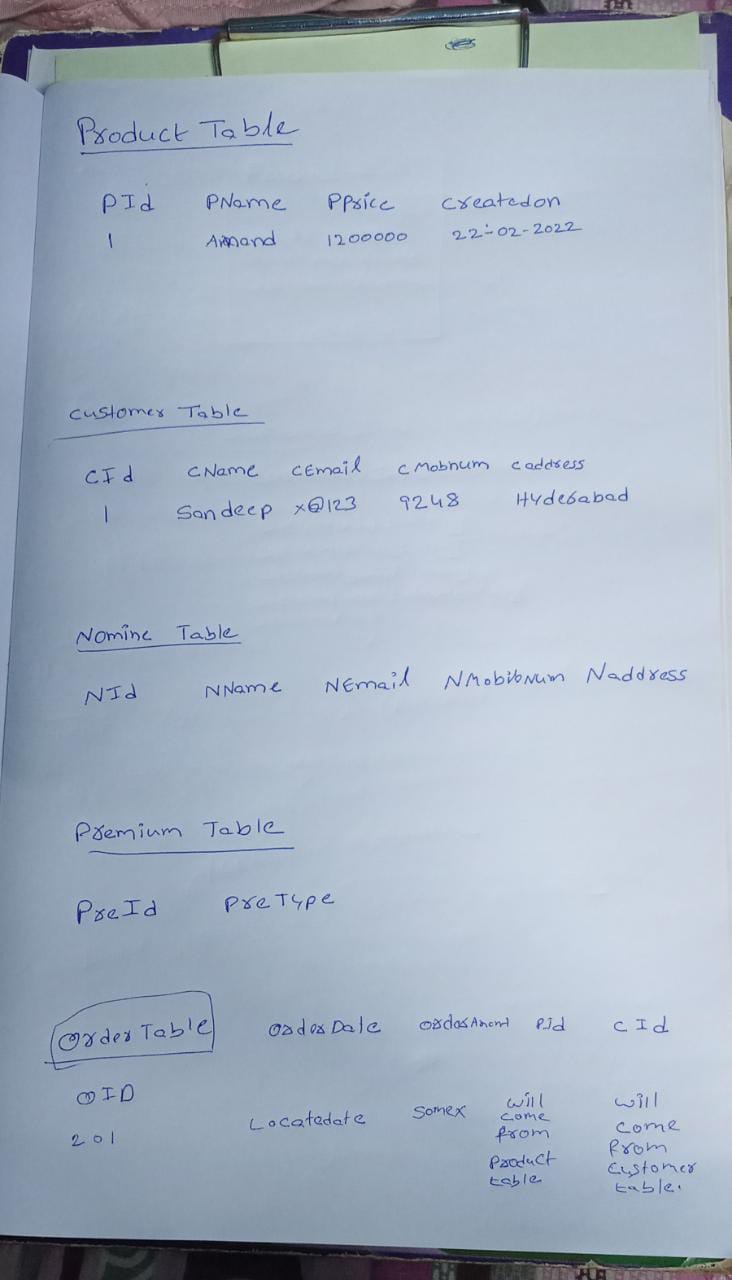 Product Table
PId PName PPrice createdon
1 1200000 22-02-2022
customer Table
CId CName CEmail CMobnum Caddress
1 Sandeep x@123 9248 Hyderabad
Nomine Table
NId NName NEmail Naddress
Premium Table
PreId PreType
Order Table OrderDate PId CId
OID
201 Locatedate somex will come from Product table will come from Customer table.